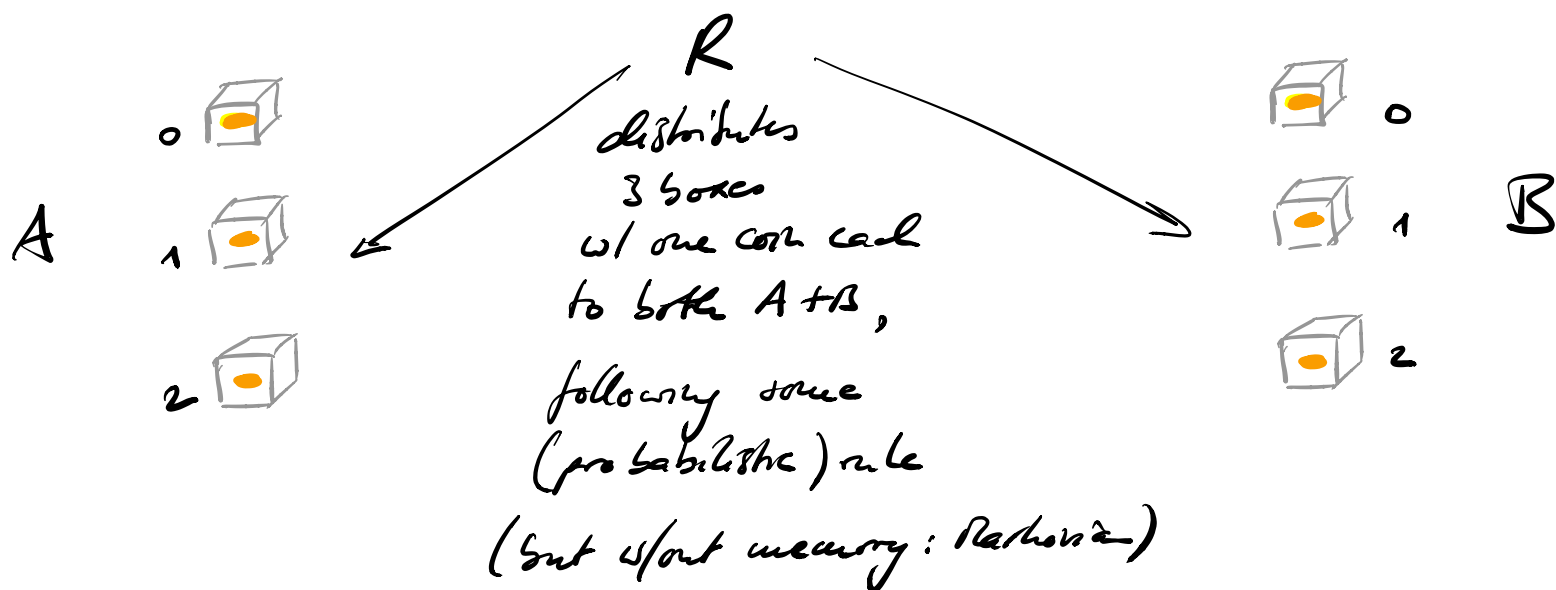 R
distributes
3 boxes
w/ one coin each
to both A+B,
following some
(probabilistic) rule
(but w/out memory: Markovian)
A
0
1
2
0
1
2
B